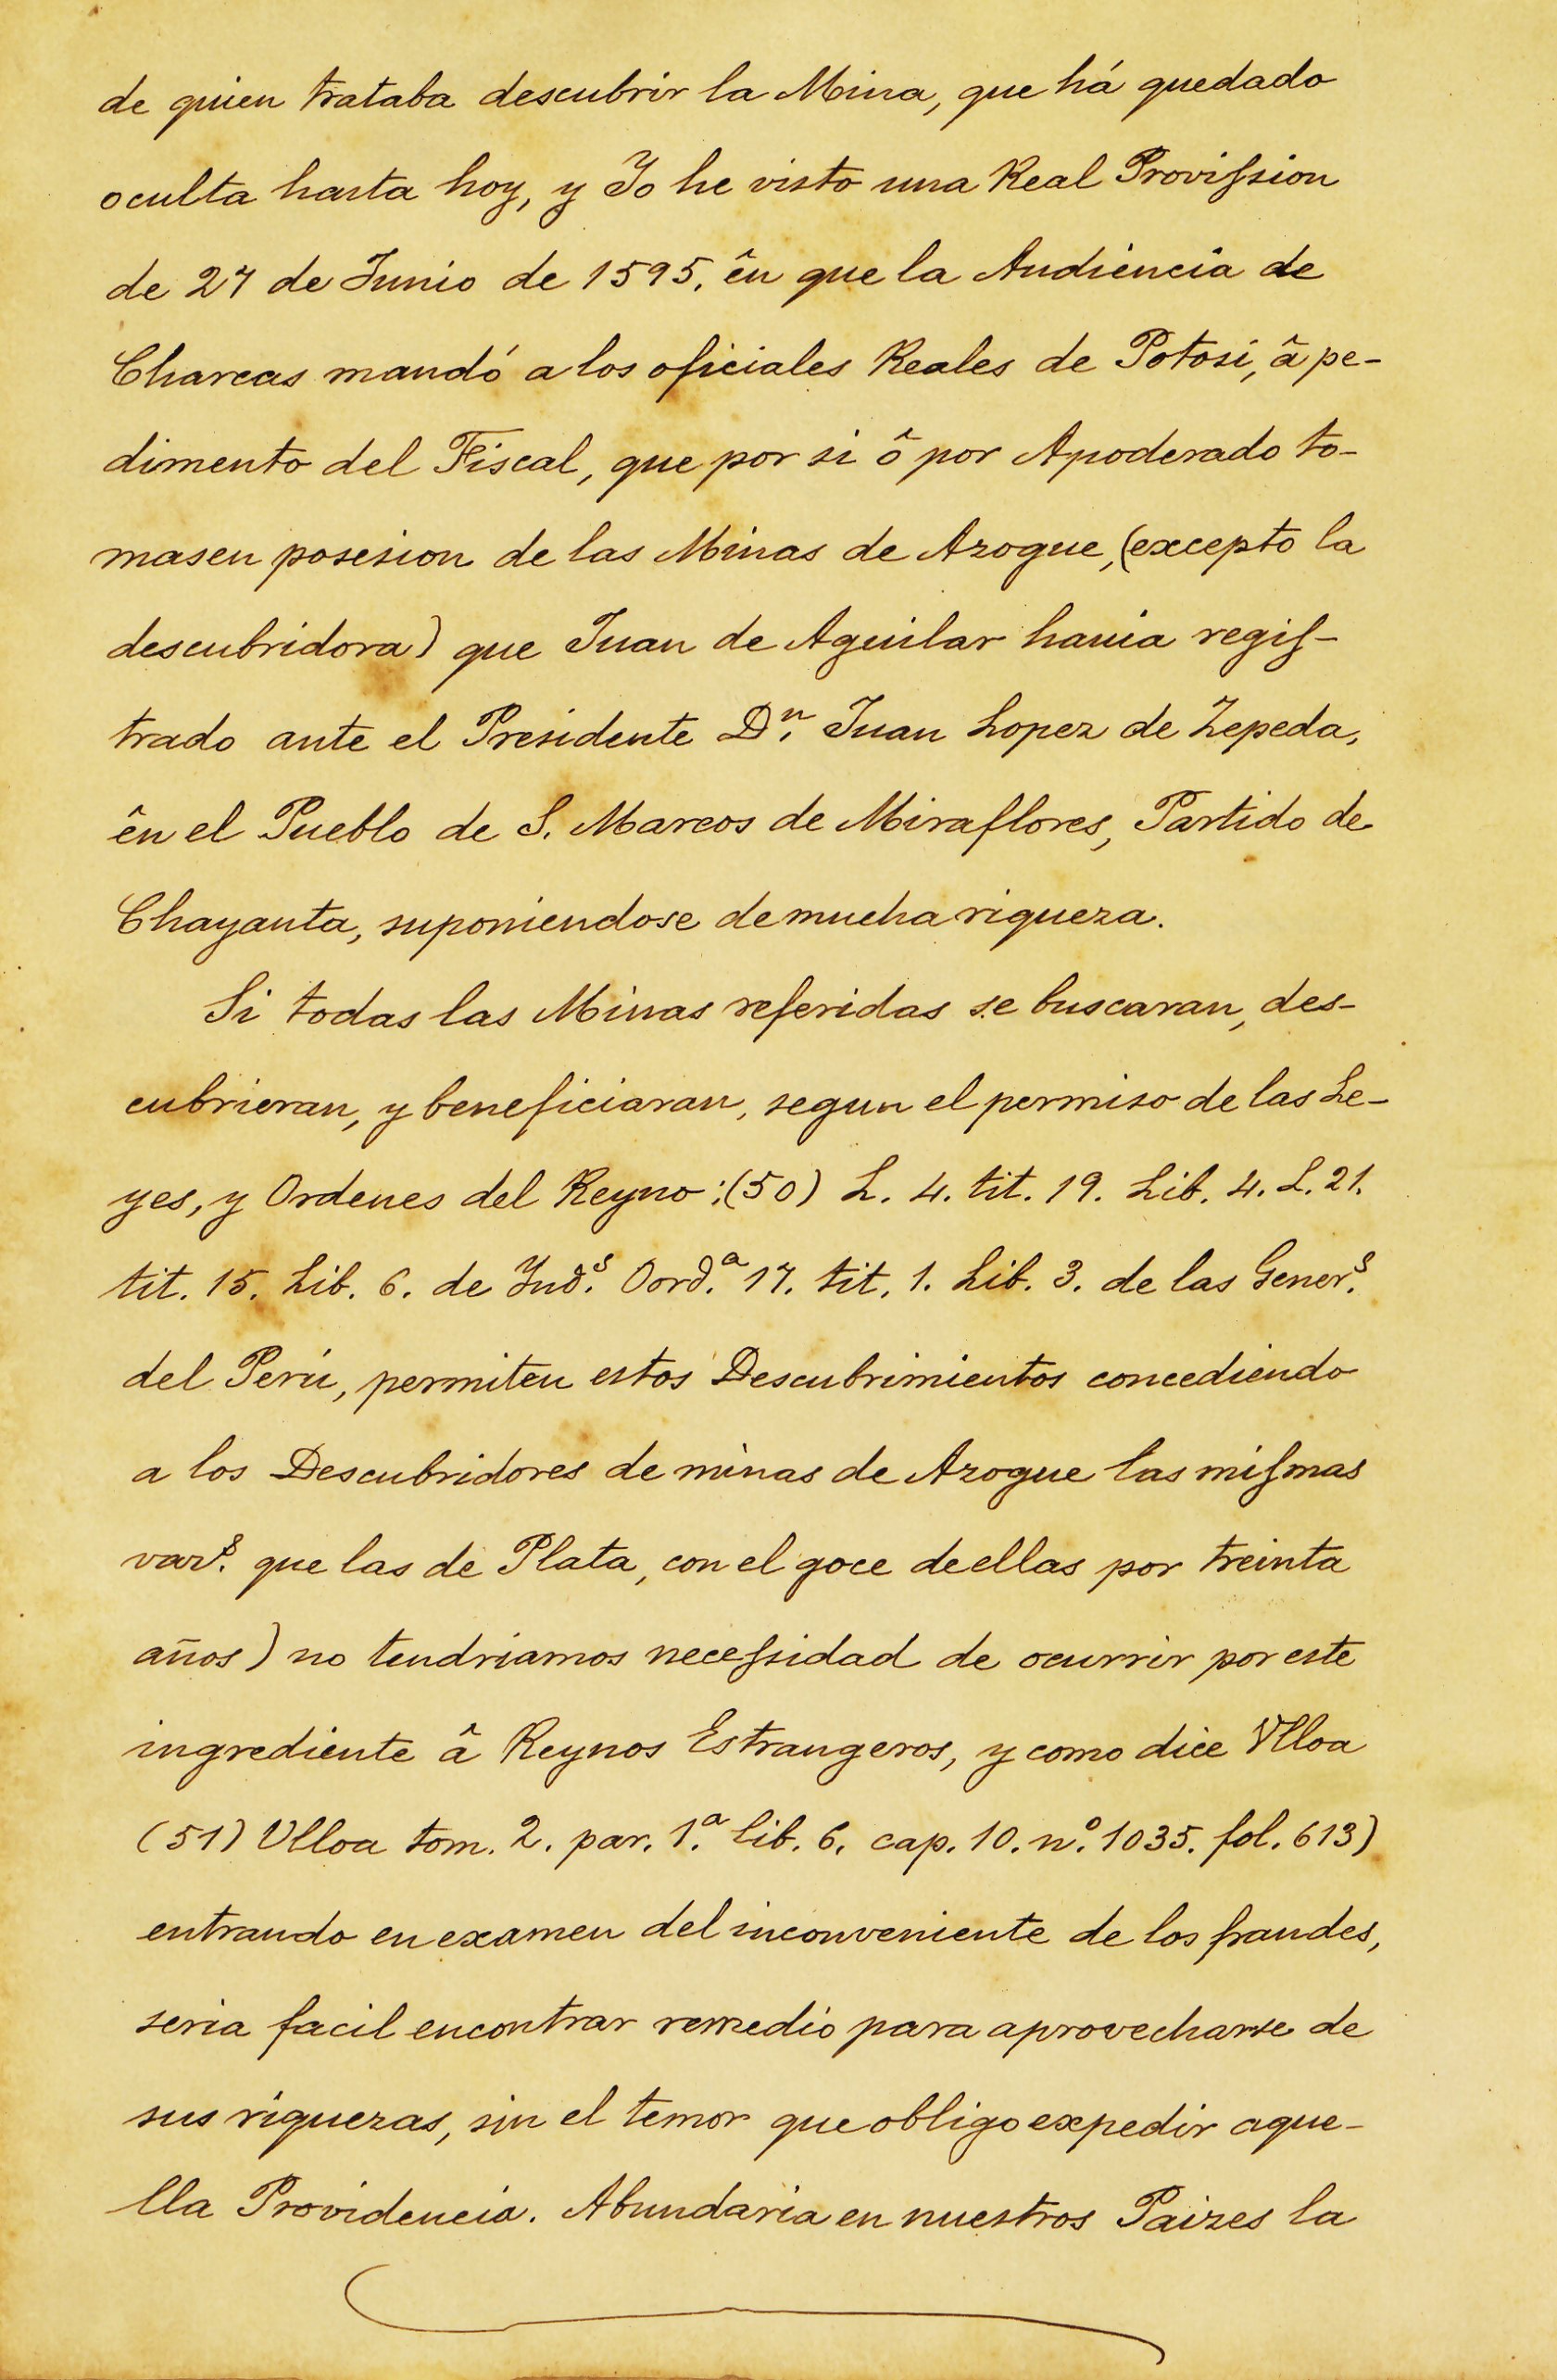 de quien trataba descubrir la Mina, que há quedado
oculta hasta hoy, y Yo he visto una Real Provission
de 27 de Junio de 1595. ên que la Audiencia de
Charcas mandó a los oficiales Reales de Potosi, â pe-
dimento del Fiscal, que por si ô por Apoderado to-
masen posesion de las Minas de Azogue, (excepto la
descubridora) que Juan de Aguilar hauia regis-
trado ante el Presidente Dn. Juan Lopez de Zepeda,
ên el Pueblo de S. Marcos de Miraflores, Partido de
Chayanta, suponiendose de mucha riqueza.
Si todas las Minas referidas se buscaran, des-
cubrieran, y beneficiaran, segun el permiso de las Le-
yes, y Ordenes del Reyno: (50) L. 4. tit. 19. Lib. 4. L. 21.
tit. 15. Lib. 6. de Inds. Oord.a 17. tit. 1. Lib. 3. de las Geners.
del Perú, permiten estos Descubrimientos concediendo
a los Descubridores de minas de Azogue las mismas
vars. que las de Plata, con el goce de ellas por treinta
años) no tendriamos necessidad de ocurrir por este
ingrediente â Reynos Estrangeros, y como dice Vlloa
(51) Ulloa tom. 2. par. 1.a lib. 6. cap. 10. n.o 1035. fol. 613)
entrando en examen del inconveniente de los fraudes,
seria facil encontrar remedio para aprovecharse de
sus riquezas, sin el temor que obligo expedir aque-
lla Providencia. Abundaria en nuestros Paizes la